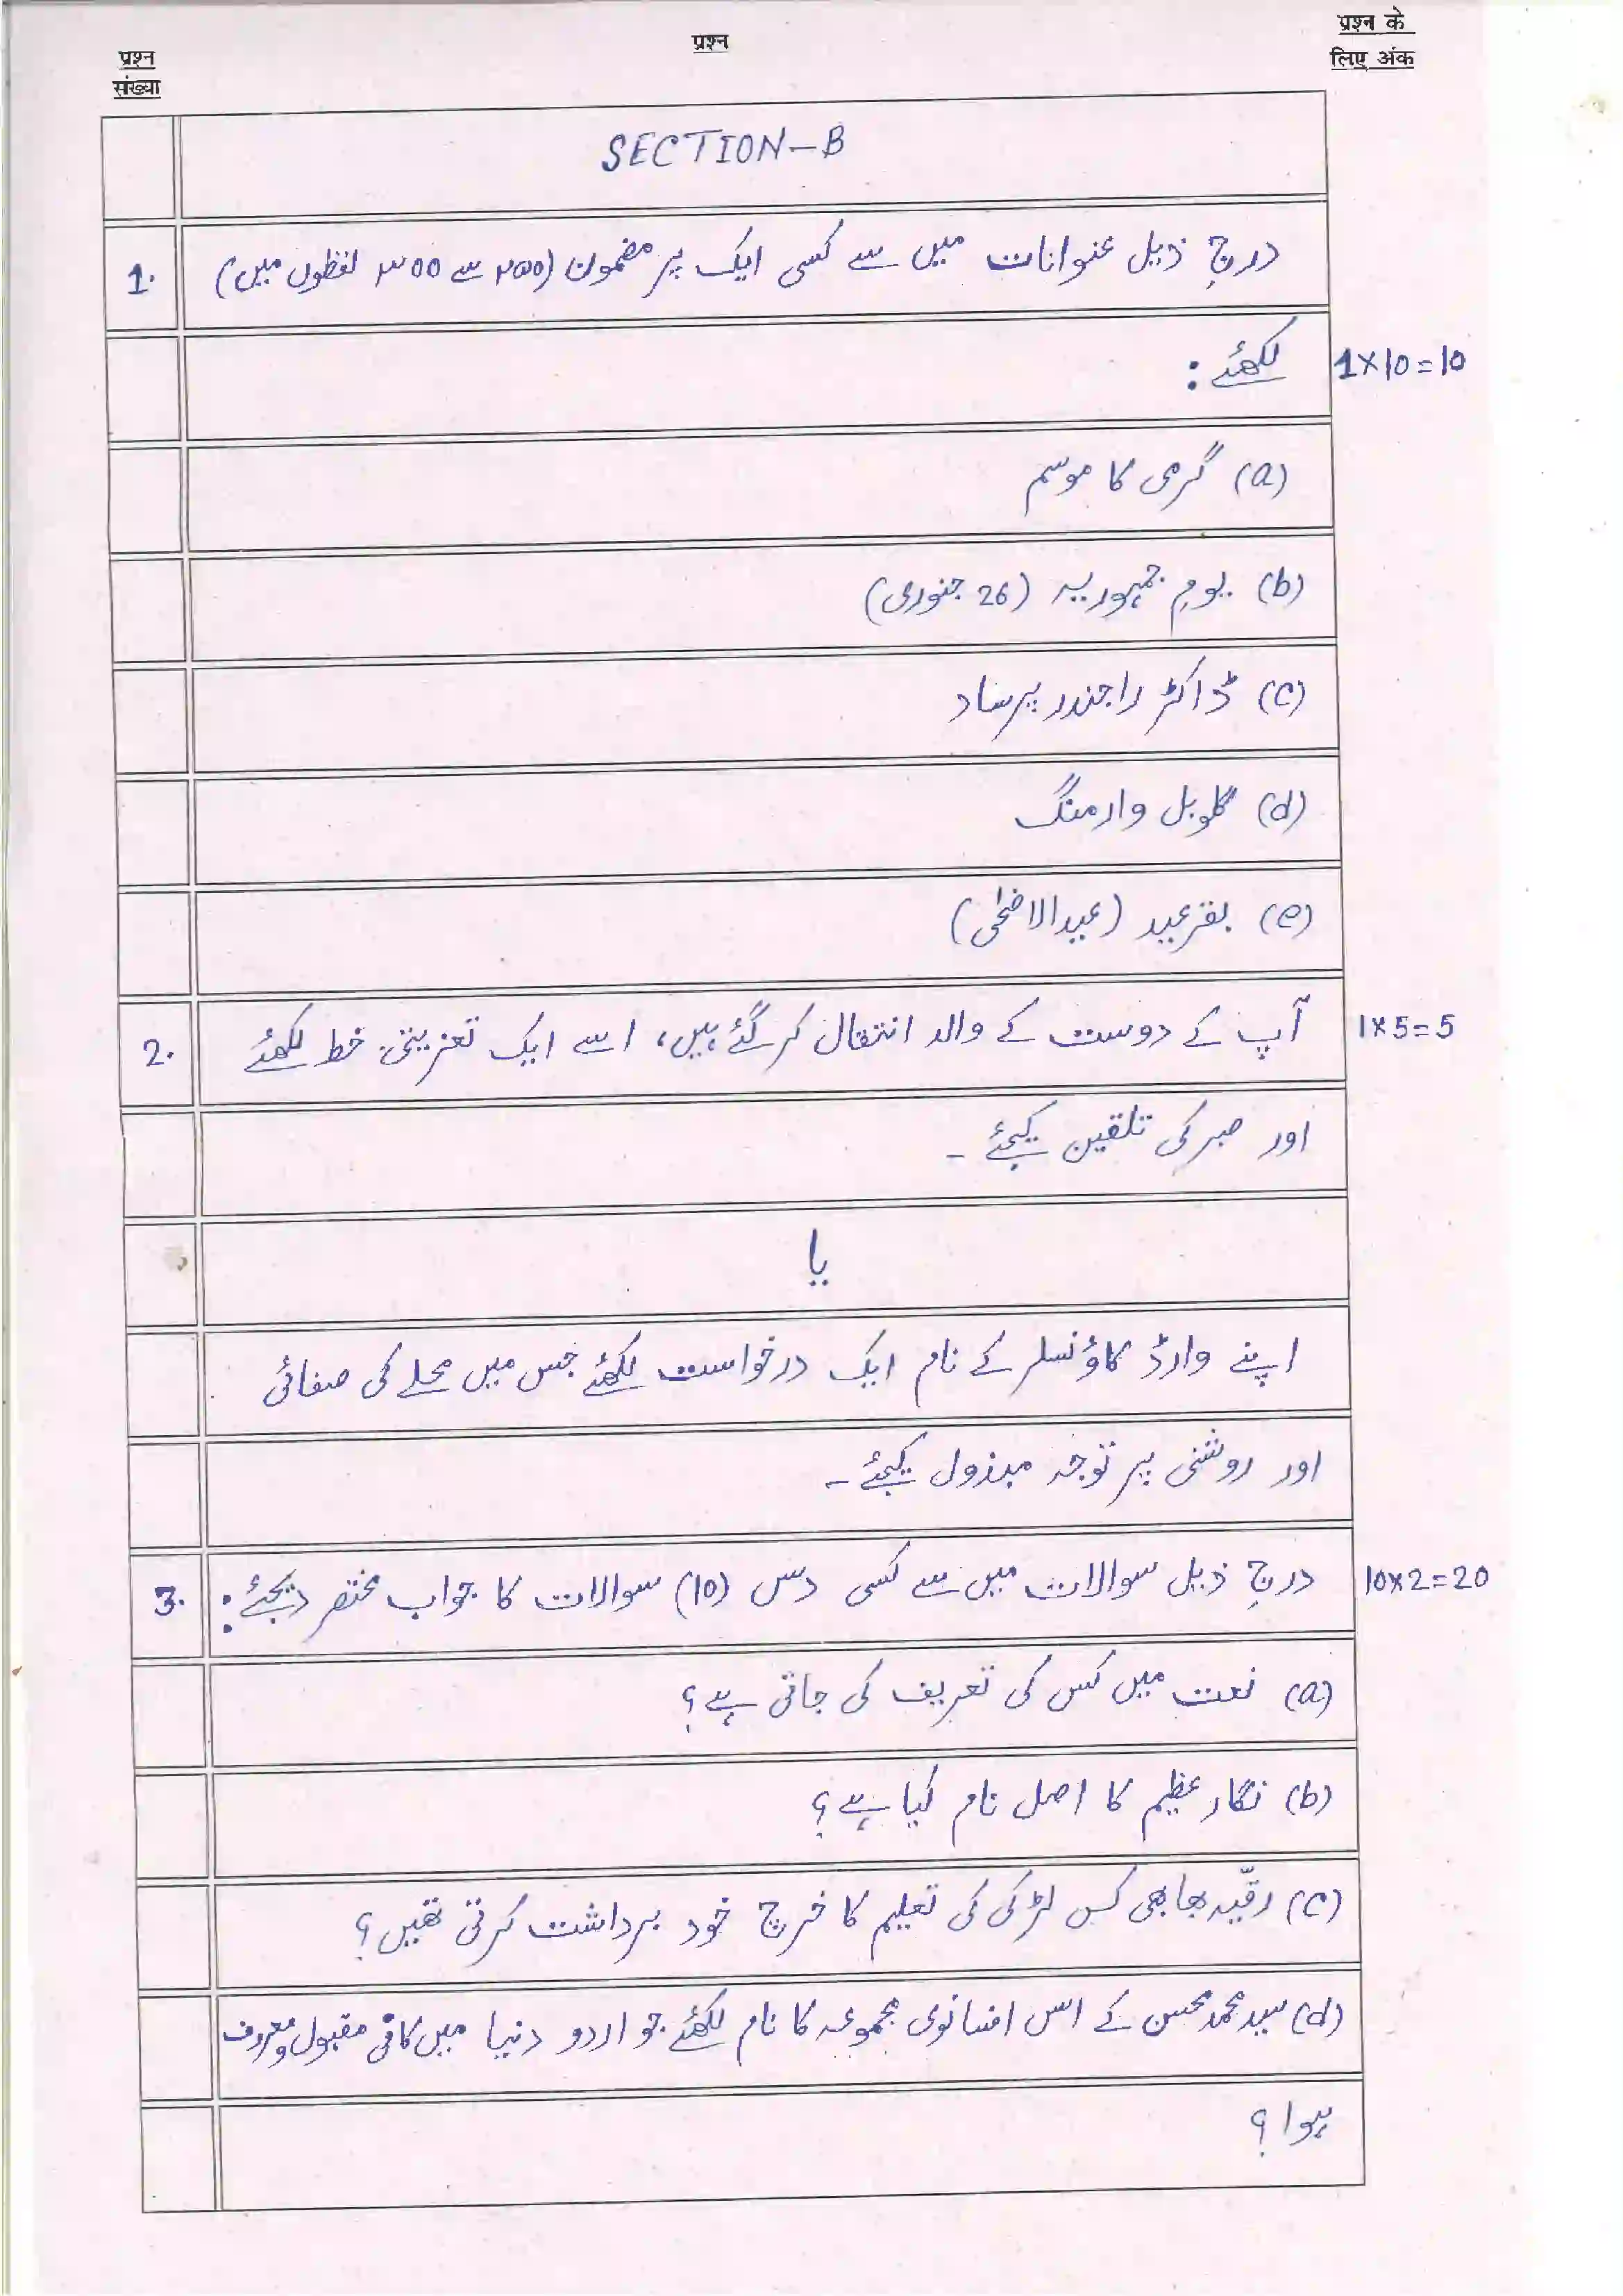 प्रश्न संख्या
प्रश्न
प्रश्न के लिए अंक
SECTION-B
1. درج ذیل عنوانات میں سے کسی ایک پر مضمون (۲۵۰ سے ۳۰۰ لفظوں میں)
لکھئے : 1×10=10
(a) گرمی کا موسم
(b) یومِ جمہوریہ (26 جنوری)
(c) ڈاکٹر راجندر پرساد
(d) گلوبل وارمنگ
(e) بقرعید (عیدالاضحیٰ)
2. آپ کے دوست کے والد انتقال کر گئے ہیں، اسے ایک تعزیتی خط لکھئے 1×5=5
اور صبر کی تلقین کیجئے -
یا
اپنے وارڈ کاؤنسلر کے نام ایک درخواست لکھئے جس میں محلے کی صفائی
اور روشنی پر توجہ مبذول کیجئے -
3. درج ذیل سوالات میں سے کسی دس (10) سوالات کا جواب مختصر دیجئے : 10×2=20
(a) نعت میں کس کی تعریف کی جاتی ہے؟
(b) نگار عظیم کا اصل نام کیا ہے؟
(c) رقیّہ بھابھی کس لڑکی کی تعلیم کا خرچ خود برداشت کرتی تھیں؟
(d) سید محمد محسن کے اس افسانوی مجموعہ کا نام لکھئے جو اردو دنیا میں کافی مقبول و معروف
ہوا؟